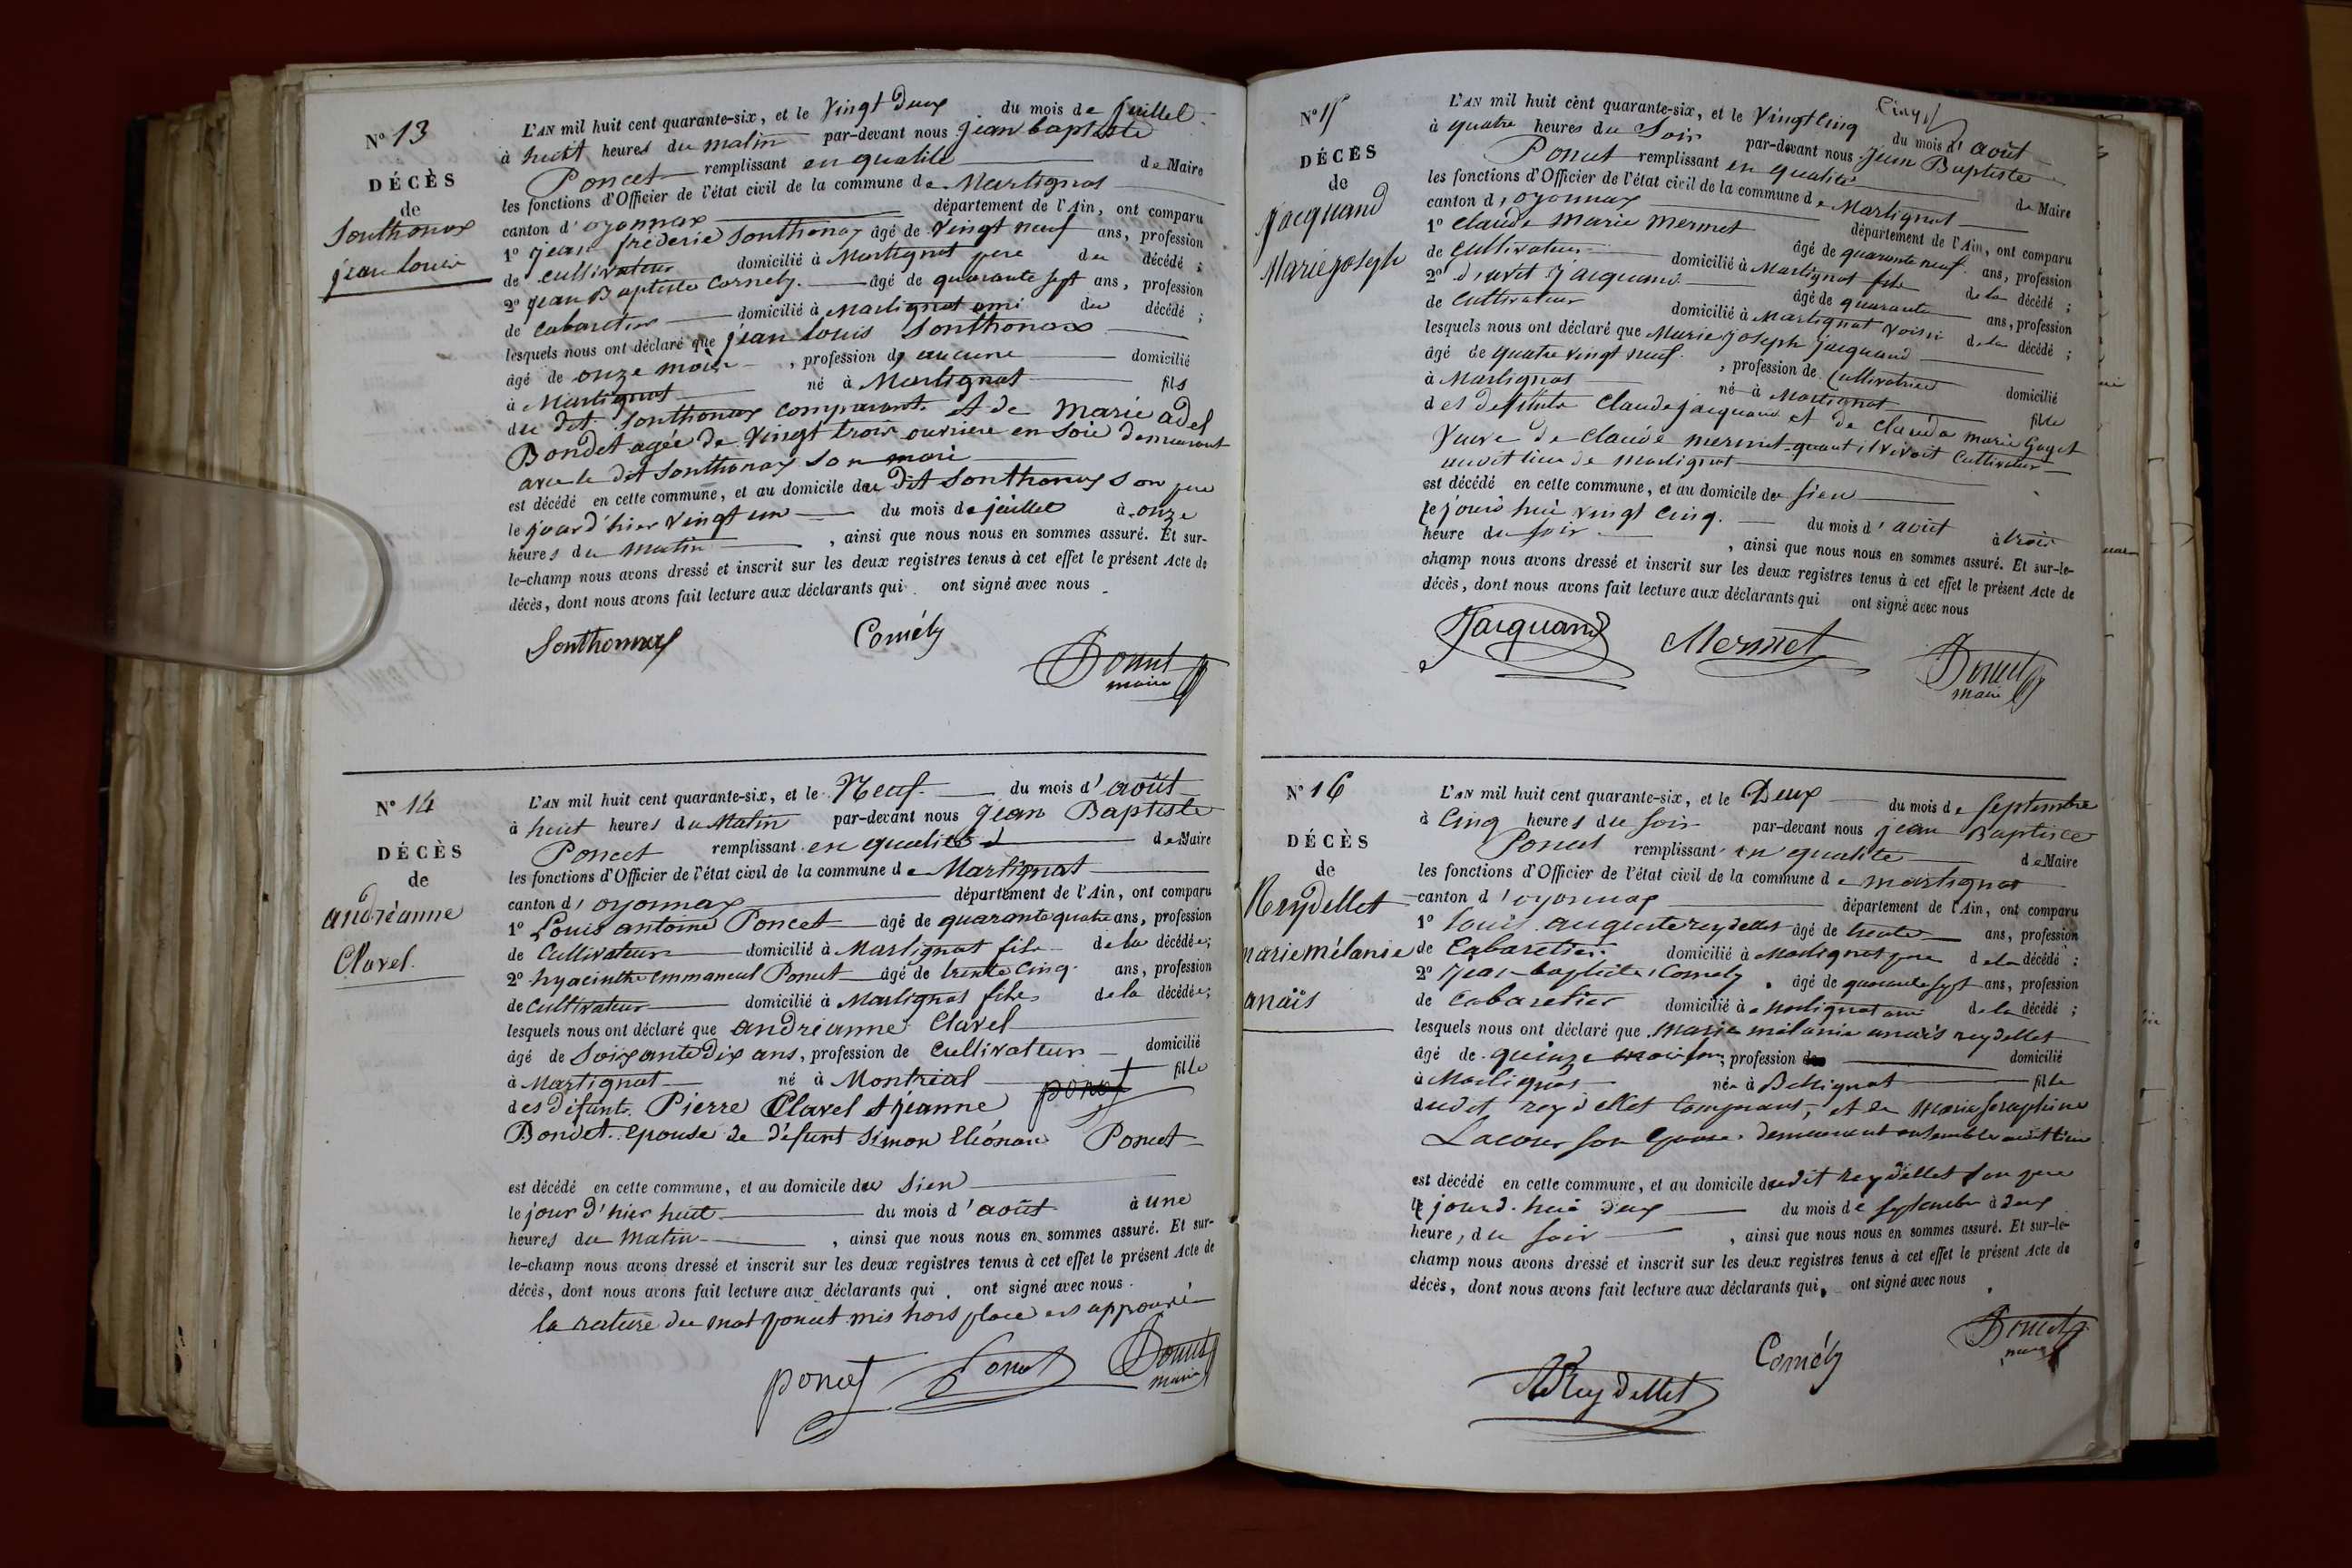 N° 13
DÉCÈS
de
Sonthonax
jean louis
L'AN mil huit cent quarante-six, et le Vingt Deux du mois de juillet
à huit heures du matin par-devant nous jean baptiste
Poncet remplissant en qualité de Maire
les fonctions d'Officier de l'état civil de la commune de Martignat
canton d'oyonnax département de l'Ain, ont comparu
1° jean fréderic Sonthonax âgé de vingt neuf ans, profession
de cultivateur domicilié à Martignat pere du décédé ;
2° jean Baptiste Cornély âgé de quarante sept ans, profession
de cabaretier domicilié à Martignat ami du décédé ;
lesquels nous ont déclaré que jean louis Sonthonax
âgé de onze mois , profession d aucune domicilié
à Martignat né à Martignat fils
du dit Sonthonax comparant et de Marie adel
Bondet agée de Vingt trois ouvriere en Soie demeurant
avec le dit Sonthonax Son mari
est décédé en cette commune, et au domicile du dit Sonthonax Son pere
le jour d'hier vingt un du mois de juillet à onze
heures du matin , ainsi que nous nous en sommes assuré. Et sur-
le-champ nous avons dressé et inscrit sur les deux registres tenus à cet effet le présent Acte de
décès, dont nous avons fait lecture aux déclarants qui ont signé avec nous
Sonthonnax Comély Poncet
maire
N° 14
DÉCÈS
de
andréanne
Clavel
L'AN mil huit cent quarante-six, et le Neuf du mois d'août
à huit heures du Matin par-devant nous jean Baptiste
Poncet remplissant en qualité de Maire
les fonctions d'Officier de l'état civil de la commune de Martignat
canton d'oyonnax département de l'Ain, ont comparu
1° Louis antoine Poncet âgé de quarante quatre ans, profession
de Cultivateur domicilié à Martignat fils de la décédée;
2° hyacinthe emmanuel Poncet âgé de trente Cinq ans, profession
de cultivateur domicilié à Martignat fils de la décédée;
lesquels nous ont déclaré que andréanne Clavel
âgé de Soixante dix ans, profession de cultivateur domicilié
à Martignat né à Montréal poncet fille
des défunts Pierre Clavel et jeanne
Bondet épouse de défunt Simon eléonore Poncet
est décédé en cette commune, et au domicile du Sien
le jour d'hier huit du mois d'août à une
heures du Matin , ainsi que nous nous en sommes assuré. Et sur-
le-champ nous avons dressé et inscrit sur les deux registres tenus à cet effet le présent Acte de
décès, dont nous avons fait lecture aux déclarants qui ont signé avec nous.
la rature du mot poncet mis hors place est appouvé
poncet Poncet Poncet
maire
N° 15
DÉCÈS
de
Jacquand
Marie joseph
Cinq
L'AN mil huit cent quarante-six, et le Vingt Cinq du mois d'août
à quatre heures du Soir par-devant nous Jean Baptiste
Poncet remplissant en qualité de Maire
les fonctions d'Officier de l'état civil de la commune de Martignat
canton d'oyonnax département de l'Ain, ont comparu
1° Claude Marie Mermet âgé de quarante neuf ans, profession
de Cultivateur domicilié à Martignat fils de la décédé ;
2° jacquand âgé de quarante ans, profession
de Cultivateur domicilié à Martignat voisin de la décédé ;
lesquels nous ont déclaré que Marie joseph jacquand
âgé de quatre vingt neuf , profession de Cultivatrice domicilié
à Martignat né à Martignat fille
des défunts Claude jacquand et de Clauda marie Goyet
Veuve de Claude mermet quant il vivoit Cultivateur
audit lieu de Martignat
est décédé en cette commune, et au domicile du sien
le jourd huï vingt cinq du mois d'août à trois
heure du soir , ainsi que nous nous en sommes assuré. Et sur-le-
champ nous avons dressé et inscrit sur les deux registres tenus à cet effet le présent Acte de
décès, dont nous avons fait lecture aux déclarants qui ont signé avec nous
Jacquand Mermet Poncet
maire
N° 16
DÉCÈS
de
Reydellet
marie mélanie
anaïs
L'AN mil huit cent quarante-six, et le Deux du mois de Septembre
à Cinq heures du soir par-devant nous jean Baptiste
Poncet remplissant en qualité de Maire
les fonctions d'Officier de l'état civil de la commune de martignat
canton d'oyonnax département de l'Ain, ont comparu
1° louis auguste reydellet âgé de trente ans, profession
de Cabaretier domicilié à Martignat pere de la décédé ;
2° jean baptiste Comély âgé de quarante sept ans, profession
de Cabaretier domicilié à Martignat ami de la décédé ;
lesquels nous ont déclaré que marie mélanie anaïs reydellet
âgé de quinze mois , profession domicilié
à Martignat née à Bellignat fille
dudit reydellet Comparant, et de Marie Seraphine
Lacour son épouse demeurant ensemble audit lieu
est décédé en cette commune, et au domicile dudit reydellet son pere
le jourd. huï deux du mois de septembre à deux
heures du soir , ainsi que nous nous en sommes assuré. Et sur-le-
champ nous avons dressé et inscrit sur les deux registres tenus à cet effet le présent Acte de
décès, dont nous avons fait lecture aux déclarants qui ont signé avec nous
Reydellet Comély Poncet
maire